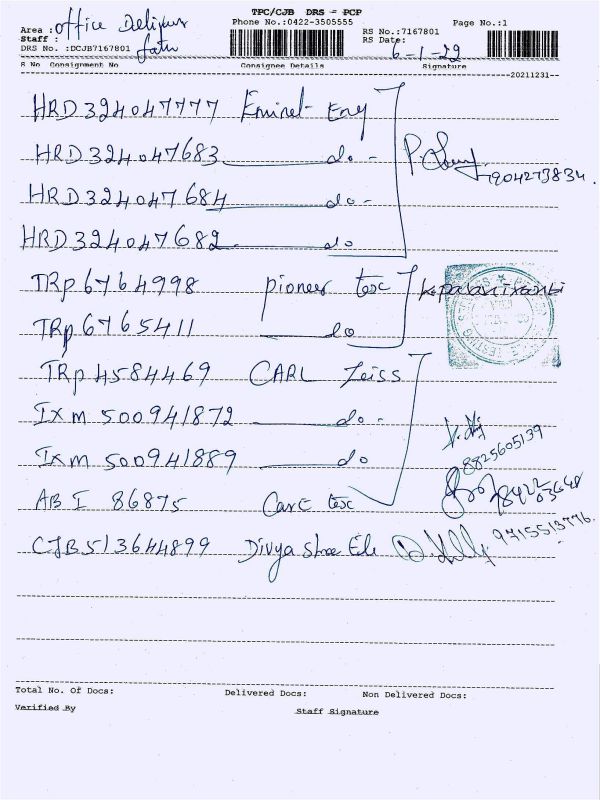 TPC/CJB DRS - PCP
Area : office Delivery Phone No.:0422-3505555 RS No.:7167801 Page No.:1
Staff : RS Date: 6-1-22
DRS No. :DCJB7167801
S No Consignment No Consignee Details Signature
20211231
HRD324047777
HRD324047683 do -
HRD324047684 do -
HRD324047682 do
7904273834
TRP6764998 pioneer tex
TRP6765411 do
TRP4584469 CARL Zeiss
IXM 500941872 do -
IXM 500941889 do
8825605139
ABI 86875 Care tex
CJB513644899 Divya Shree Ele 9715513776
Total No. Of Docs: Delivered Docs: Non Delivered Docs:
Verified By Staff Signature